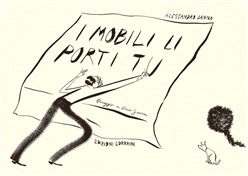 ALESSANDRO SANNA
I MOBILI LI
PORTI TU
Omaggio a Bruno Munari
EDIZIONI CORRAINI